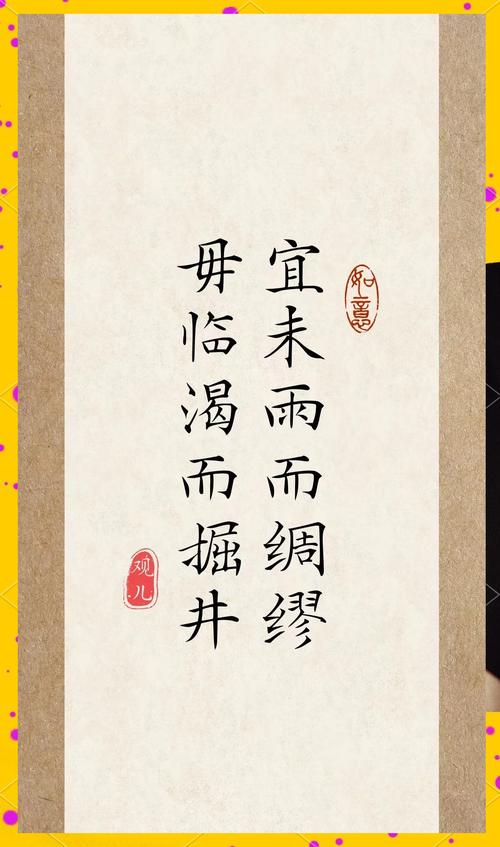 如意
宜未雨而绸缪
毋临渴而掘井
观儿